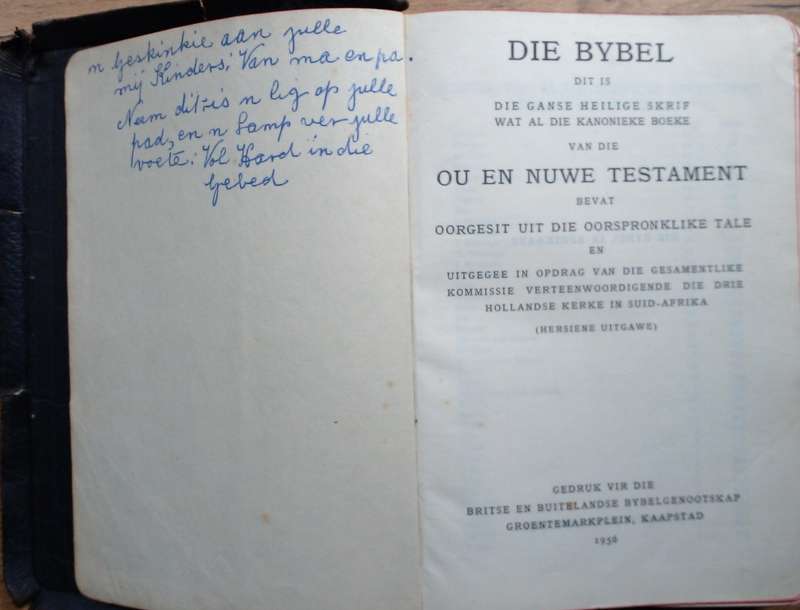 n Geskinkie aan julle
mij Kinders; Van ma en pa.
Neem dit-is n lig op julle
pad, en n Lamp ver julle
voete: Vol Hard in die
Gebed
DIE BYBEL
DIT IS
DIE GANSE HEILIGE SKRIF
WAT AL DIE KANONIEKE BOEKE
VAN DIE
OU EN NUWE TESTAMENT
BEVAT
OORGESIT UIT DIE OORSPRONKLIKE TALE
EN
UITGEGEE IN OPDRAG VAN DIE GESAMENTLIKE
KOMMISSIE VERTEENWOORDIGENDE DIE DRIE
HOLLANDSE KERKE IN SUID-AFRIKA
(HERSIENE UITGAWE)
GEDRUK VIR DIE
BRITSE EN BUITELANDSE BYBELGENOOTSKAP
GROENTEMARKPLEIN, KAAPSTAD